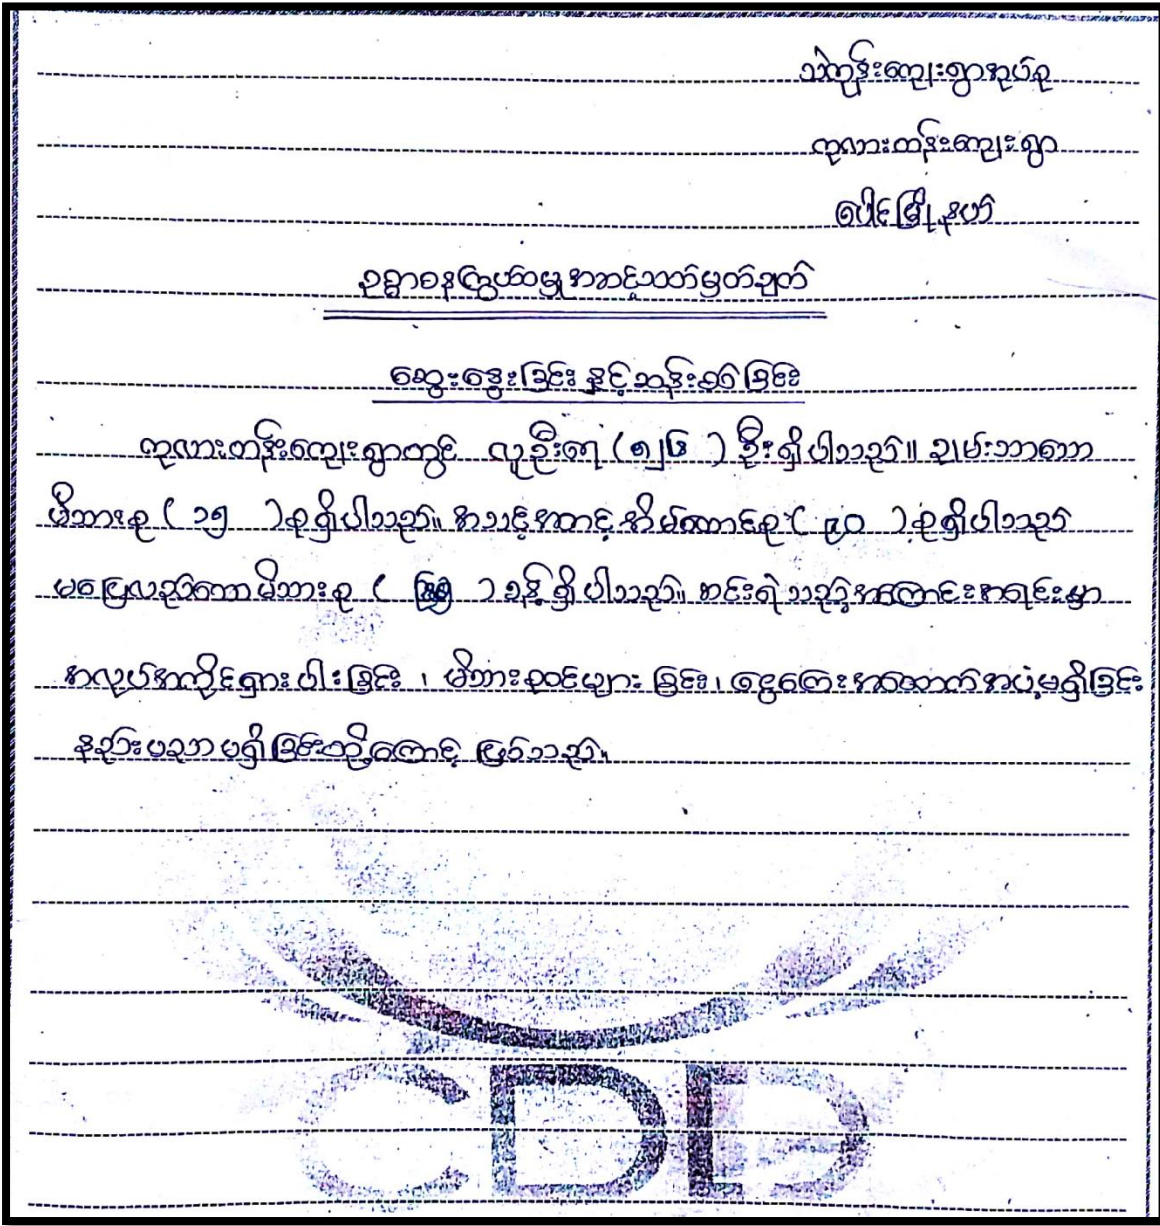 သဲကုန်းကျေးရွာအုပ်စု
ကုလားတန်းကျေးရွာ
ပေါင်မြို့နယ်
ဥစ္စာဓနကြွယ်ဝမှုအဆင့်သတ်မှတ်ချက်
ဆွေးနွေးခြင်း နှင့် ဆန်းစစ်ခြင်း
ကုလားတန်းကျေးရွာတွင် လူဦးရေ ( ) ဦးရှိပါသည်။ ချမ်းသာသော
မိသားစု ( ၁၅ ) စုရှိပါသည်။ အသင့်အတင့် အိမ်ထောင်စု ( ၄၀ ) စုရှိပါသည်
မပြေလည်သောမိသားစု ( ) ခန့် ရှိပါသည်။ ဆင်းရဲသည့်အကြောင်းအရင်းမှာ
အလုပ်အကိုင်ရှားပါးခြင်း ၊ မိသားစုဝင်များခြင်း၊ ငွေကြေးအထောက်အပံ့မရှိခြင်း
နည်းပညာမရှိခြင်းတို့ကြောင့် ဖြစ်သည်။
CDD